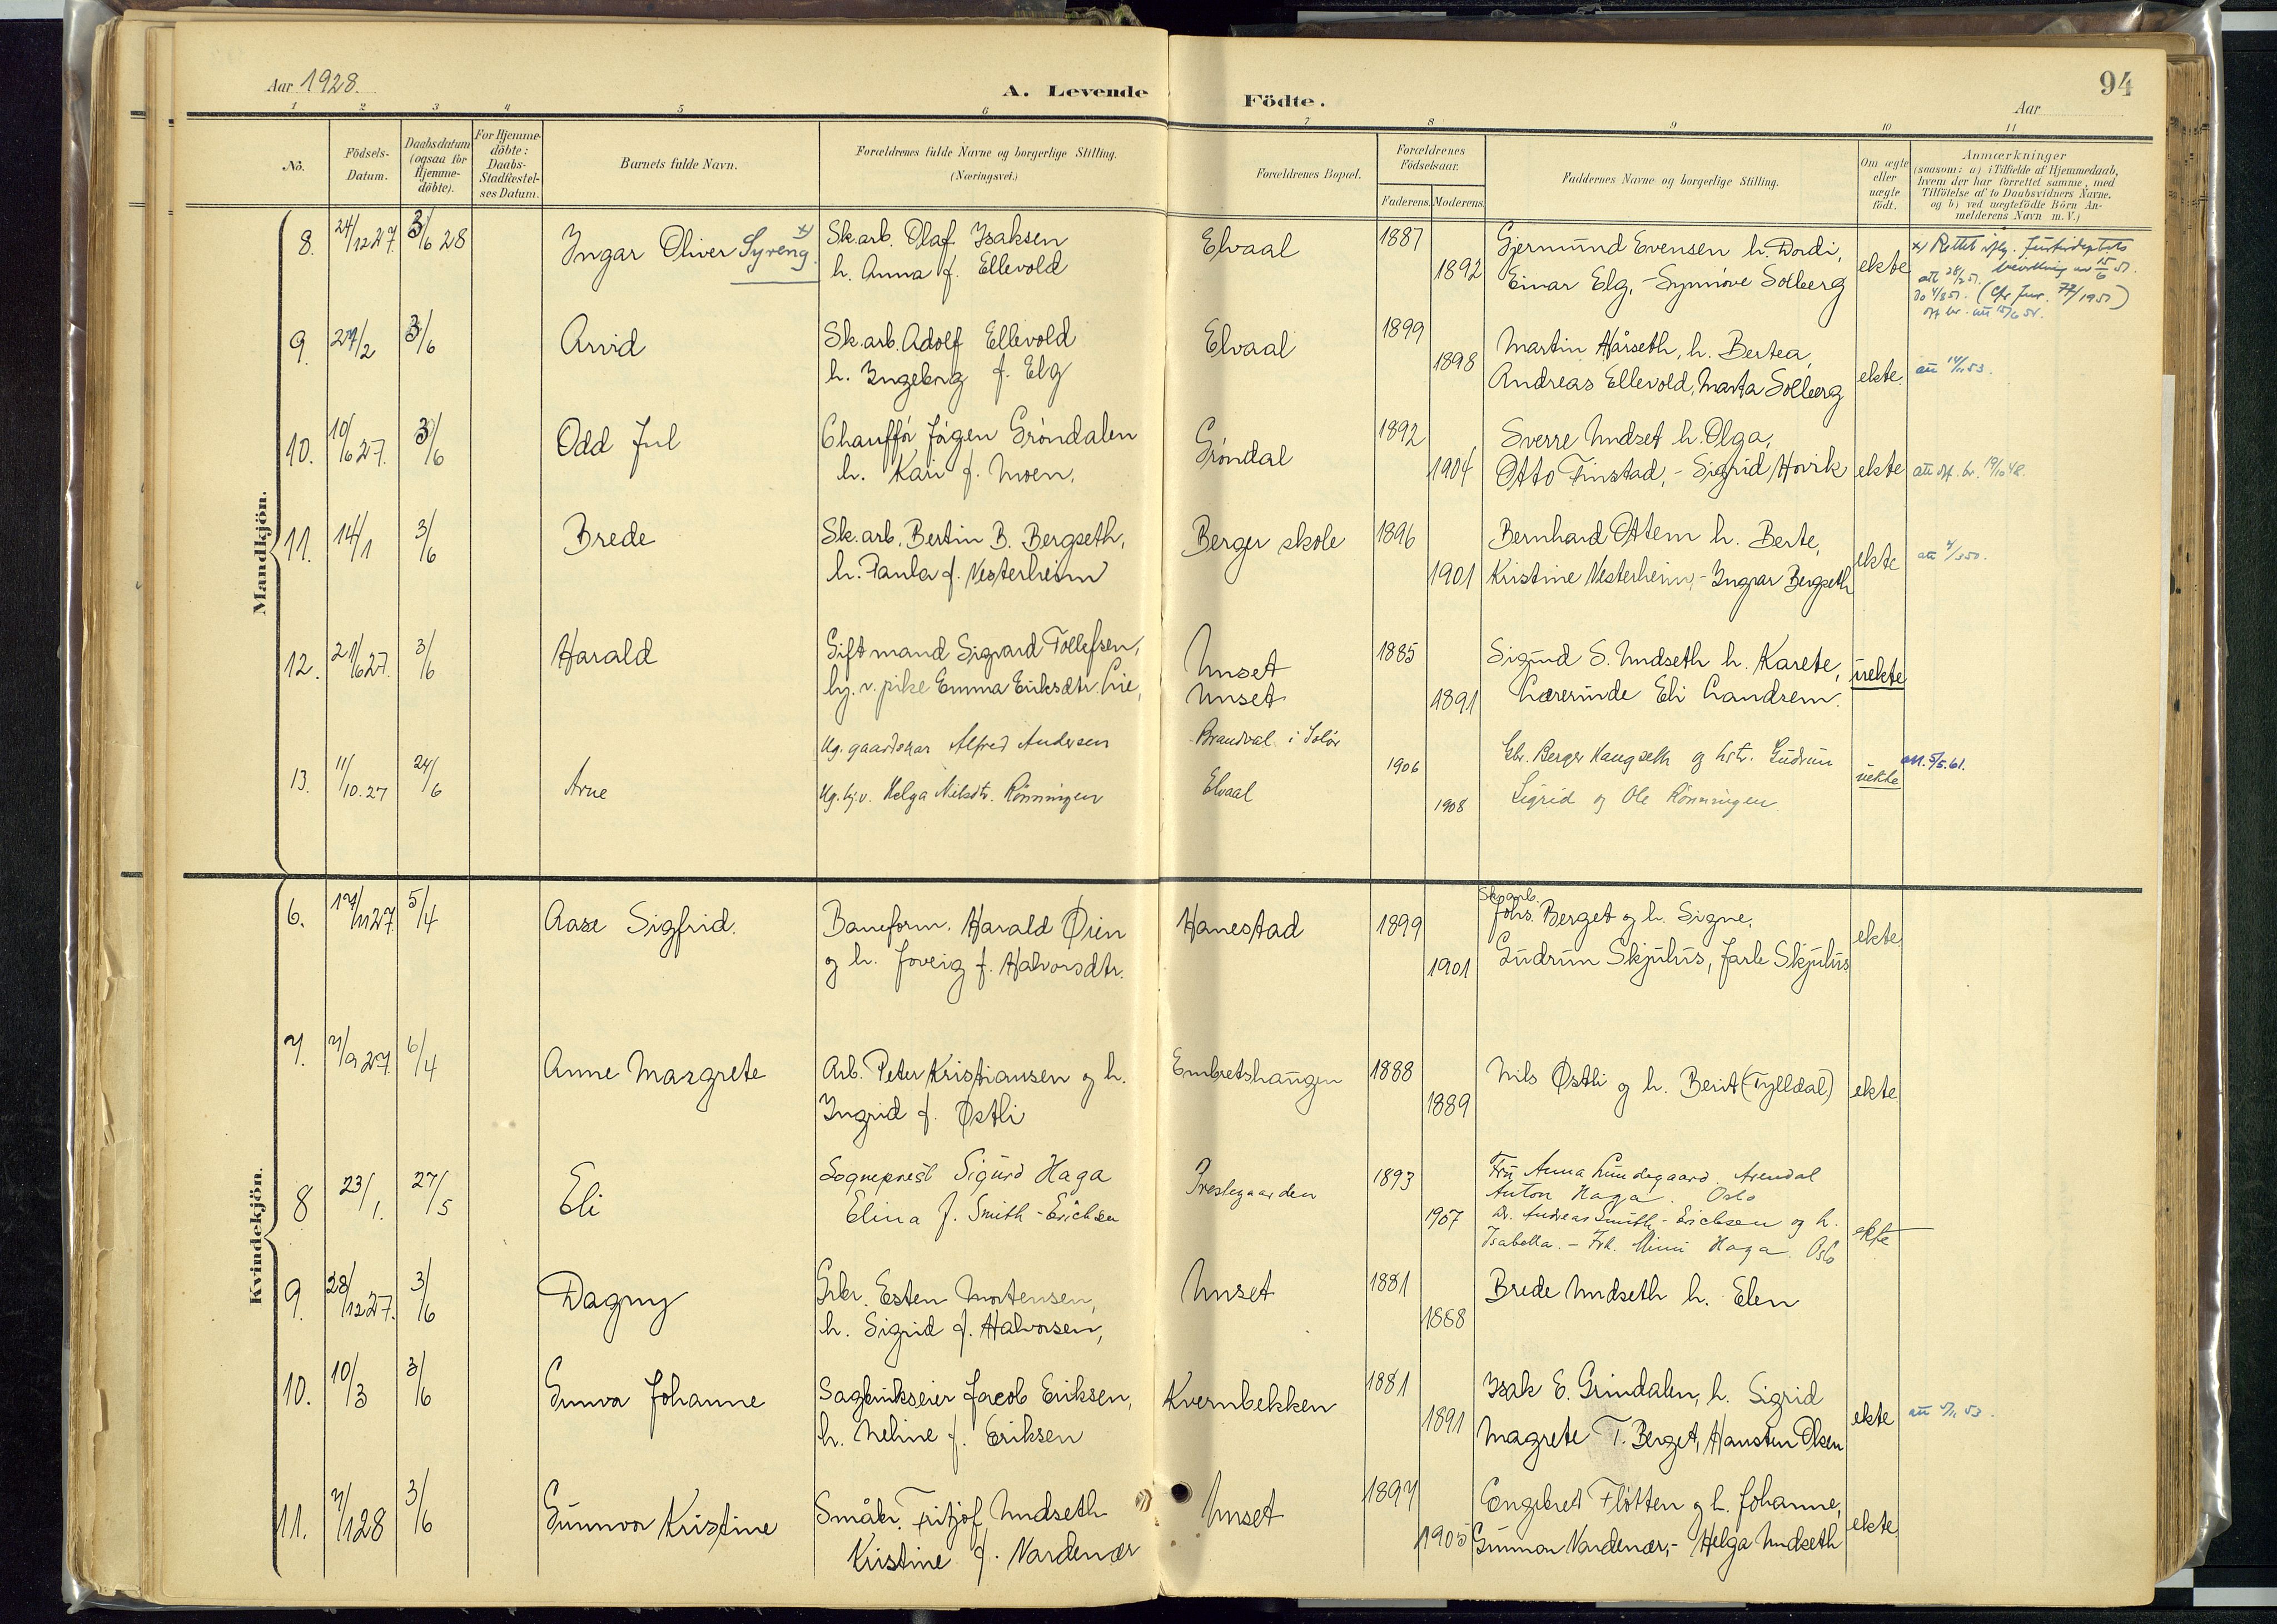 Aar 1928.
A. Levende Födte.
94
Aar
1 2 3 4 5 6 7 8 9 10 11
No.
Födsels-Datum.
Daabsdatum (ogsaa for Hjemme-döbte).
For Hjemme-döbte: Daabs-Stadfæstel-ses Datum.
Barnets fulde Navn.
Forældrenes fulde Navne og borgerlige Stilling. (Næringsvei.)
Forældrenes Bopæl.
Forældrenes Födselsaar.
Faderens. Moderens.
Faddernes Navne og borgerlige Stilling.
Om ægte eller uægte födt.
Anmærkninger
(saasom: a) i Tilfælde af Hjemmedaab,
hvem der har forrettet samme, med
Tilföielse af to Daabsvidners Navne.
og b) ved uægtefödte Börn An-
melderens Navn m. V.)
Mandkjön.
8. 24/12 27. 3/6 28 Ingar Oliver Syreng x) Sk.arb. Olaf Isaksen Elvaal 1887 Gjermund Evensen h. Dordi,
h. Anna f. Ellevold 1892 Einar Elg, - Synnöve Solberg ekte
x) Rettet
(Cfr Jnr. 77/1951)
9. 27/2 3/6 Arvid Sk.arb. Adolf Ellevold Elvaal 1899 Martin Hårseth, h. Bertea,
h. Ingeborg f. Elg 1898 Andreas Ellevold, Marta Solberg ekte. att 14/11 53.
10. 10/6 27. 3/6 Odd Jul Chaufför Jögen Gröndalen Gröndal 1892 Sverre Undset h. Olga,
h. Kari f. Moen, 1904 Otto Finstad, - Sigrid Hovik ekte att off. br. 19/10 48.
11. 14/1 3/6 Brede Sk.arb. Bertin B. Bergseth, Berger skole 1896 Bernhard Ottem h. Berte,
h. Paula f. Vesterheim 1901 Kristine Vesterheim, - Ingvar Bergseth ekte att 4/3 50.
12. 21/6 27. 3/6 Harald Gift mand Sigvard Tollefsen, Unset 1885 Sigurd S. Undseth h. Karete,
hj. v. pike Emma Eriksdtr. Lie, Unset 1891 Lærerinde Eli Landsem. uekte
13. 11/10.27 24/6 Arne Ug. gaardskar Alfred Andersen Brandval i Solör 1906 Gbr. Berger Haugseth og hstr. Gudrun
Ug. hj.v. Helga Nilsdtr. Rönningen Elvaal 1908 Sigrid og Ole Rönningen. uekte att. 5/5.61.
Kvindekjön.
6. 17/11 27. 5/4 Aase Sigfrid. Baneform. Harald Øien Hanestad 1899 Skogarb. Johs. Berget og h. Signe.
og h. Joveig f. Halvorsdtr. 1901 Gudrun Skjulus, Jarle Skjulus ekte
7. 7/9 27. 6/4 Anne Margrete Arb. Peter Kristiansen og h. Embretshaugen 1888 Nils Østli og h. Berit (Tylldal)
Ingrid f. Østli 1889 ekte
8 23/1. 27/5 Eli Sogneprest Sigurd Haga Prestegaarden 1893 Fru Anna Lundegaard. Arendal
Anton Haga. Oslo
Elina f. Smith-Erichsen 1907 Dr. Andreas Smith-Erichsen og h.
Isabella. - Frk. Mimi Haga. Oslo ekte
9. 28/12 27. 3/6 Dagny Gbr. Esten Mortensen, Unset 1881 Brede Undseth h. Elen
h. Sigrid f. Halvorsen, 1888
10. 10/3 3/6 Gunva Johanne Sagbrukseier Jacob Eriksen, Kvernbekken 1881 Isak E. Grindalen, h. Sigrid
h. Meline f. Eriksen 1891 Magrete T. Berget, Hansten Olsen ekte
11. 7/1 28 3/6 Gunnvor Kristine Småbr. Fritjof Undseth Unset 1897 Engebret Flötten og h. Johanne,
Kristine f. Vardenær 1905 Gunnar Vardenær, - Helga Undseth ekte.